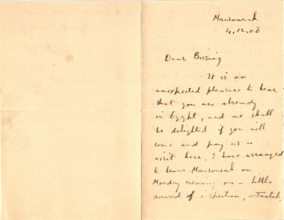 Mansourah
4.12.08
Dear Bissing
It is an
unexpected pleasure to hear
that you are already
in Egypt, and we shall
be delighted if you will
come and pay us a
visit here. I have arranged
to leave Mansourah on
Monday evening on a little
round of inspection, – Tantah,